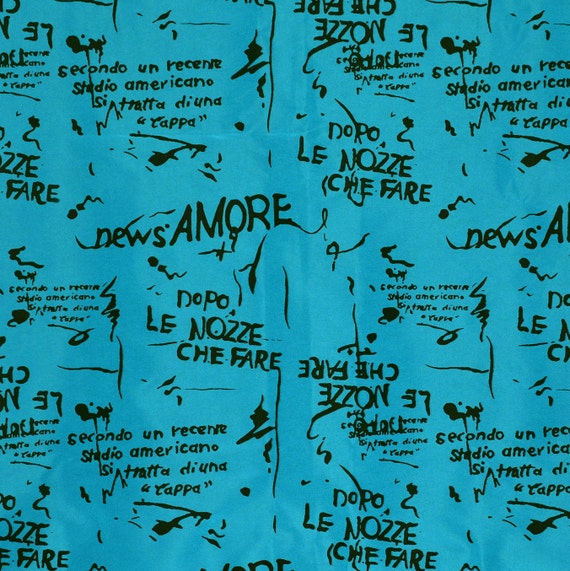 CHE FARE
LE NOZZE
LE NOZZE
secondo un recente
stadio americano
si tratta di una
"tappa"
secondo un recente
stadio americano
si tratta di una
"tappa"
NOZZE
E FARE
DOPO,
LE NOZZE
(CHE FARE
news. AMORE
news. AM
secondo un recente
stadio americano
si tratta di una
"tappa"
DOPO,
LE NOZZE
CHE FARE
secondo un recente
stadio americano
si tratta di una
"tappa"
DOPO,
LE NOZ
CHE FA
CH
LE NO
CHE FARE
LE NOZZE
secondo un recente
stadio americano
si tratta di una
"tappa"
secondo un recente
stadio america
si tratta di una
"tappa"
NOZZE
E FARE
DOPO,
LE NOZZE
(CHE FARE